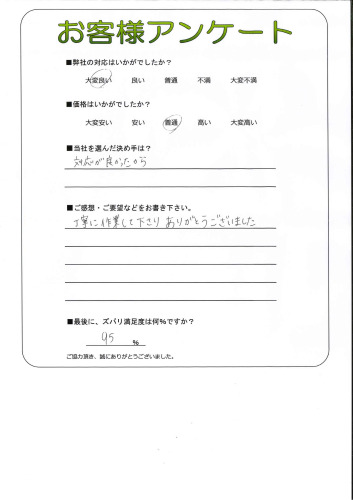 お客様アンケート
■弊社の対応はいかがでしたか？
大変良い 良い 普通 不満 大変不満
■価格はいかがでしたか？
大変安い 安い 普通 高い 大変高い
■当社を選んだ決め手は？
対応が良かったから
■ご感想・ご要望などをお書き下さい。
丁寧に作業して下さり ありがとうございました
■最後に、ズバリ満足度は何％ですか？
95 ％
ご協力頂き、誠にありがとうございました。